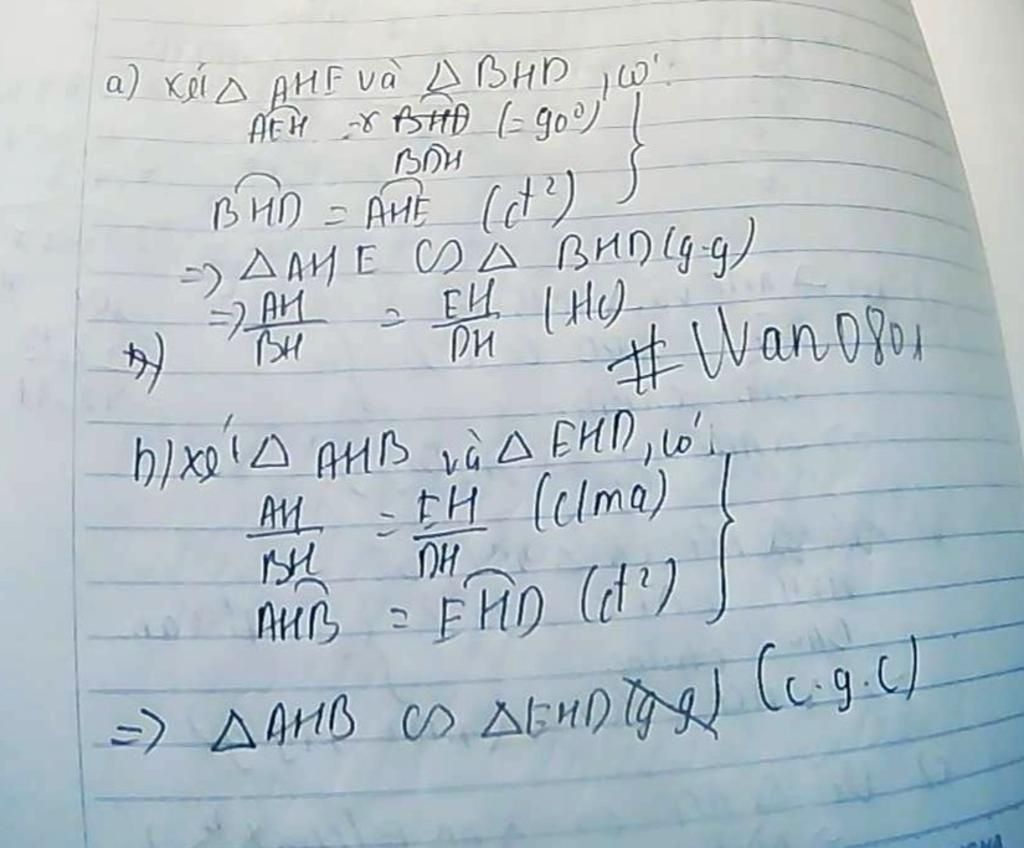 a) xét △ AHE và △ BHD, có:
AEH = BHD (= 90⁰)
BDH
BHD = AHE (đ²)
=> △ AHE ∽ △ BHD (g-g)
=> AH/BH = EH/DH (HC)
b)
# Wan0801
b) xét △ AHB và △ EHD, có:
AH/BH = EH/DH (clma)
AHB = EHD (đ²)
=> △AHB ∽ △EHD (gg) (c.g.c)